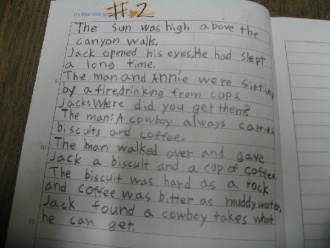 #.2
The sun was high above the
canyon walk.
Jack opened his eyes. He had slept
a long time.
The man and Annie were sitting
by a fire, drinking from cups
Jacks Were did you get them?
The man: A cowboy always carries
biscuts and coffee.
The man walked over and gave
Jack a biscuit and a cup of coffee.
The biscuit was hard as a rock
and coffee was bitter as muddy water.
Jack found a cowbey takes what
he can get.